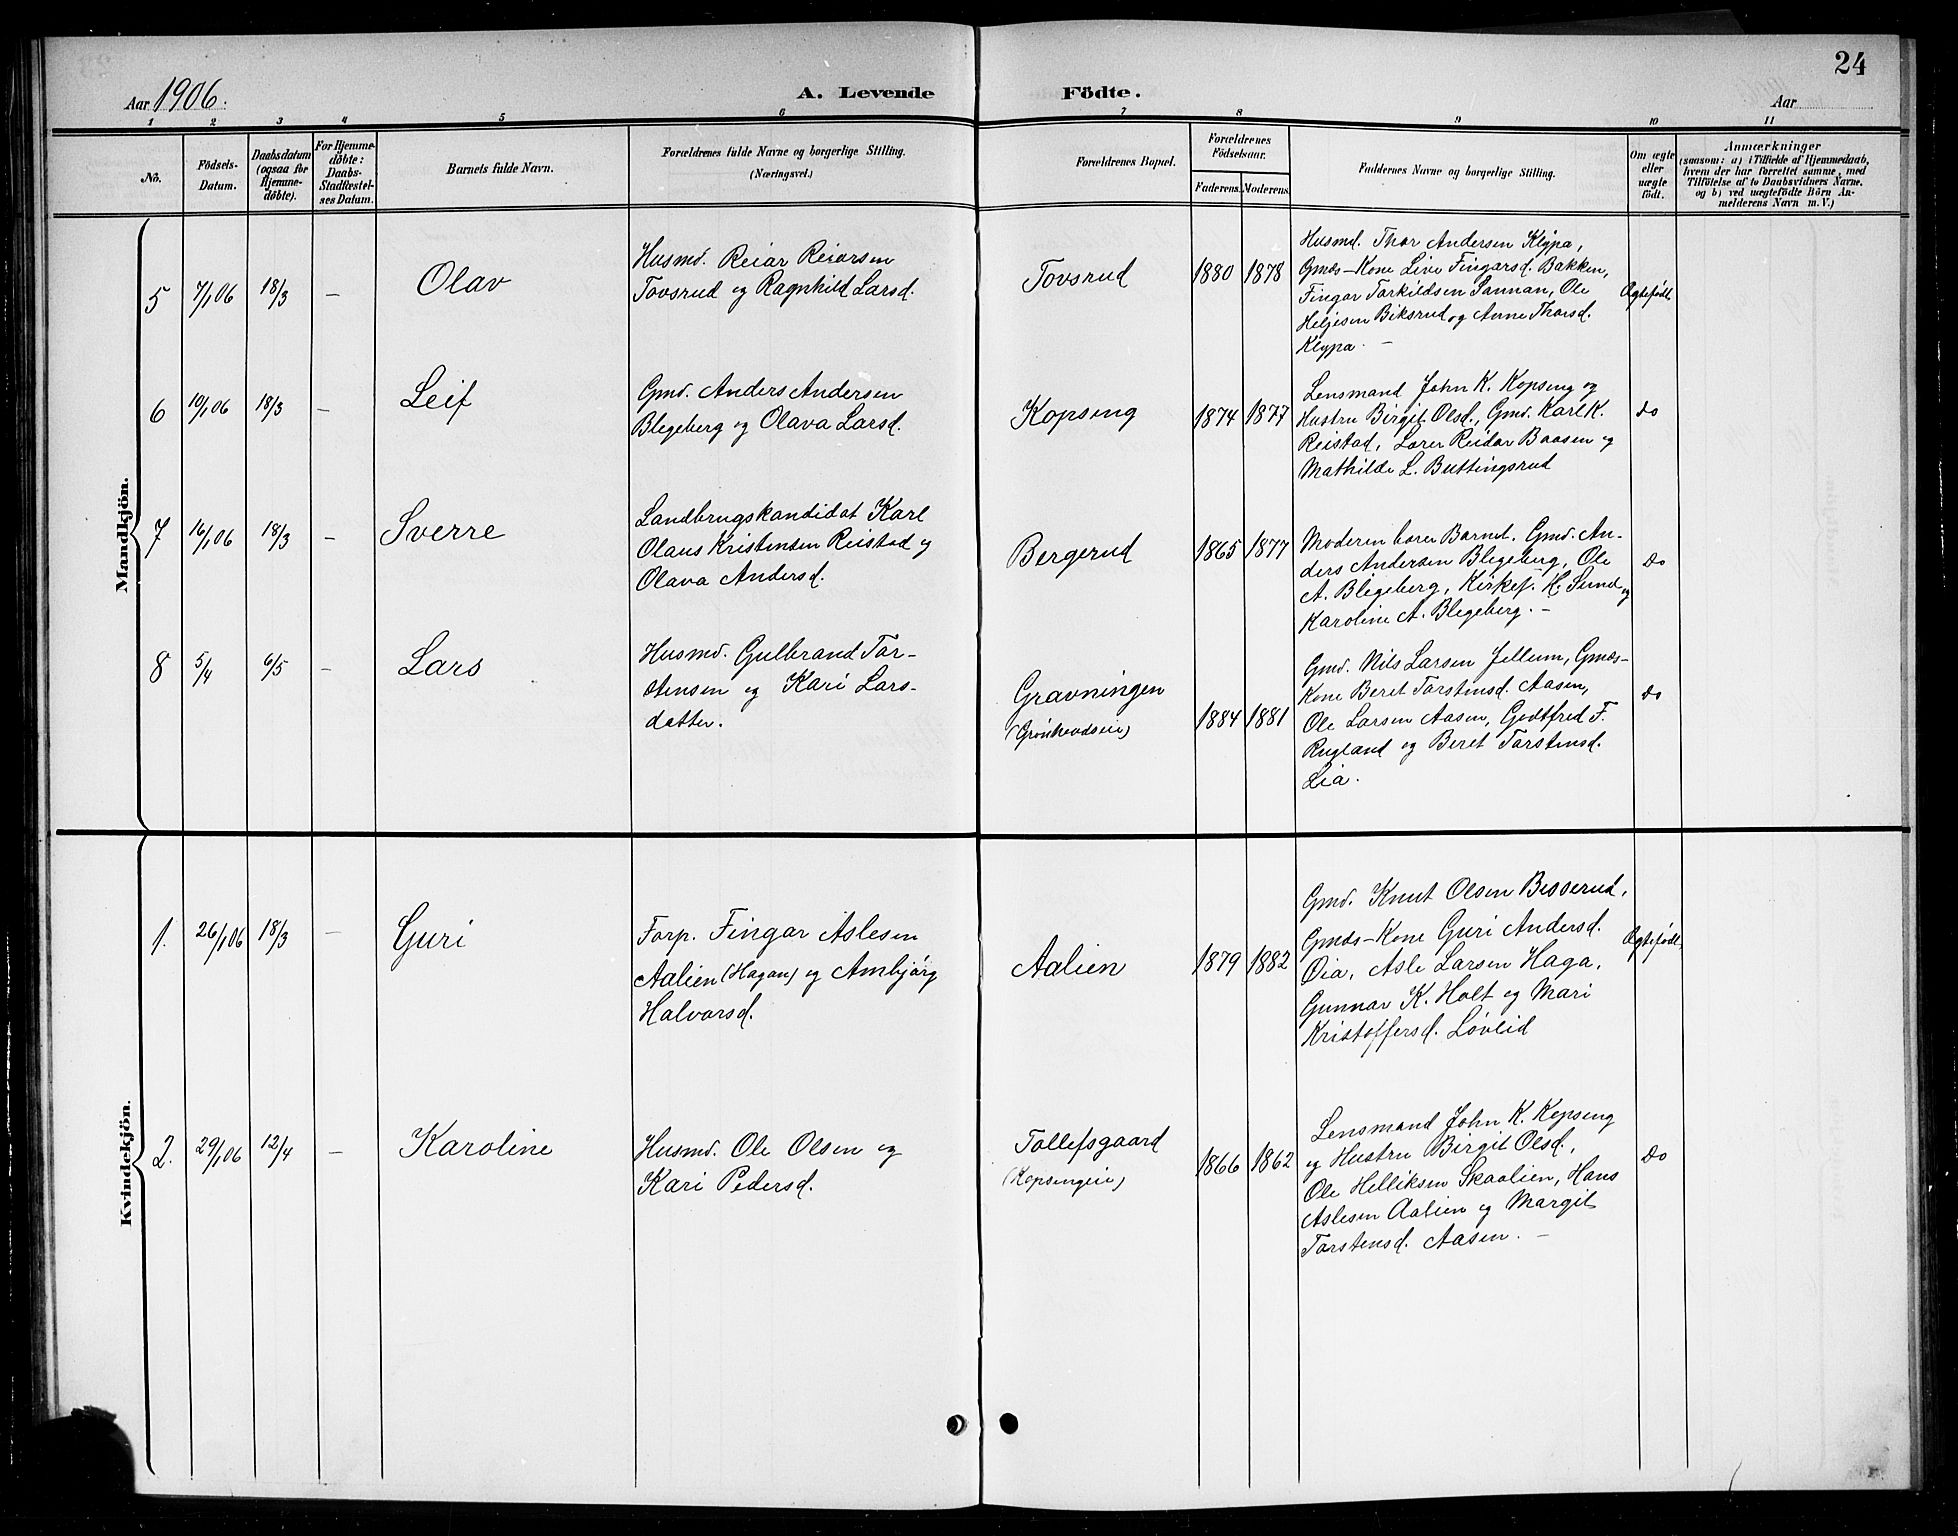 24
Aar 1906.
A. Levende Födte.
Aar
1 2 3 4 5 6 7 8 9 10 11
No.
Födsels-
Datum.
Daabsdatum
(ogsaa for
Hjemme-
döbte).
For Hjemme-
döbte:
Daabs-
Stadfæstel-
ses Datum.
Barnets fulde Navn.
Forældrenes fulde Navne og borgerlige Stilling.
(Næringsvei.)
Forældrenes Bopæl.
Forældrenes
Födselsaar.
Faderens. Moderens.
Faddernes Navne og borgerlige Stilling.
Om ægte
eller
uægte
födt.
Anmærkninger
(saasom: a) i Tilfælde af Hjemmedaab,
hvem der har forrettet samme, med
Tilföielse af to Daabsvidners Navne,
og b) ved uægtefödte Börn An-
melderens Navn m. V.)
Mandkjön.
5 7/1 06 18/3 — Olav
Husmd. Reiar Reiarsen
Tovsrud og Ragnhild Larsd.
Tovsrud 1880 1878
Husmd. Thor Andersen Klypa,
Gmds-Kone Live Fingarsd. Bakken,
Fingar Torkildsen Sannan, Ole
Heljesen Biksrud og Anne Thorsd.
Klypa. —
Ægtefødt
6 10/1 06 18/3 — Leif
Gmd. Anders Andersen
Blegeberg og Olava Larsd.
Kopseng 1874 1877
Lensmand John K. Kopseng og
Hustru Birgit Olsd., Gmd. Karl K.
Reistad, Lærer Reidar Baasen og
Mathilde L. Buttingsrud
do
7 16/1 06 18/3 — Sverre
Landbrugskandidat Karl
Olaus Kristensen Reistad og
Olava Andersd.
Bergerud 1865 1877
Moderen bærer Barnet. Gmd. An-
ders Andersen Blegeberg, Ole
A. Blegeberg, Kirkes. H. Sund og
Karoline A. Blegeberg. —
do
8 5/4 6/5 — Lars
Husmd. Gulbrand Tor-
stensen og Kari Lars-
datter.
Gravningen
(Grønhovdseie)
1884 1881
Gmd. Nils Larsen Jellum, Gmds-
Kone Beret Torstensd. Aasen,
Ole Larsen Aasen, Godtfred F.
Rugland og Beret Torstensd.
Lia.
do
Kvindekjön.
1. 26/1 06 18/3 — Guri
Forp. Fingar Aslesen
Aalien (Hagan) og Ambjørg
Halvorsd.
Aalien 1879 1882
Gmd. Knut Olsen Bisserud,
Gmds-Kone Guri Andersd.
Øia, Asle Larsen Haga,
Gunnar K. Holt og Mari
Kristoffersd. Løvlid
Ægtefødt.
2. 29/1 06 12/4 — Karoline
Husmd. Ole Olsen og
Kari Pedersd.
Tollefsgaard
(Kopsengeie)
1866 1862
Lensmand John K. Kopseng
og Hustru Birgit Olsd.,
Ole Helliksen Skaalien, Hans
Aslesen Aalien og Margit
Torstensd. Aasen. —
do